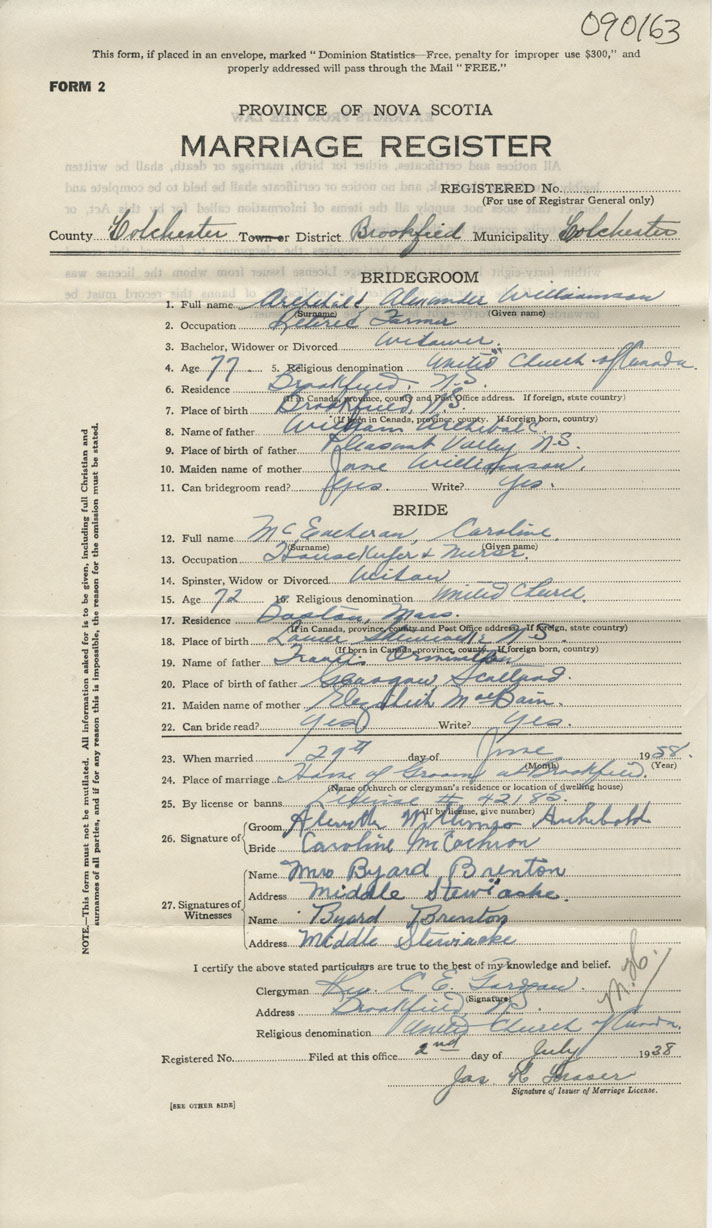 090163
This form, if placed in an envelope, marked "Dominion Statistics—Free, penalty for improper use $300," and
properly addressed will pass through the Mail "FREE."
FORM 2
PROVINCE OF NOVA SCOTIA
MARRIAGE REGISTER
REGISTERED No.
(For use of Registrar General only)
County Colchester Town or District Brookfield Municipality Colchester
BRIDEGROOM
1. Full name Archibald, Alexander Williamson
(Surname) (Given name)
2. Occupation Retired Farmer
3. Bachelor, Widower or Divorced Widower
4. Age 77 5. Religious denomination United Church of Canada.
6. Residence Brookfield, N.S.
(If in Canada, province, county and Post Office address. If foreign, state country)
7. Place of birth Brookfield, N.S.
(If born in Canada, province, county. If foreign born, country)
8. Name of father William Archibald
9. Place of birth of father Pleasant Valley N.S.
10. Maiden name of mother Jane Williamson.
11. Can bridegroom read? Yes. Write? Yes.
BRIDE
12. Full name McEacheran, Caroline
(Surname) (Given name)
13. Occupation Housekeeper & Nurse.
14. Spinster, Widow or Divorced Widow
15. Age 72 16. Religious denomination United Church.
17. Residence Boston, Mass.
(If in Canada, province, county and Post Office address. If foreign, state country)
18. Place of birth Lower N.S.
(If born in Canada, province, county. If foreign born, country)
19. Name of father
20. Place of birth of father Glasgow Scotland.
21. Maiden name of mother Elizabeth MacBain.
22. Can bride read? Yes Write? Yes.
23. When married 29th day of June 1938.
(Month) (Year)
24. Place of marriage Home of Groom at Brookfield.
(Name of church or clergyman's residence or location of dwelling house)
25. By license or banns License # 42185.
(If by license, give number)
26. Signature of Groom Archibald
Bride Caroline McEachron
27. Signatures of Witnesses Name Mrs Byard Brenton
Address Middle Stewiacke.
Name Byard Brenton
Address Middle Stewiacke
NOTE.—This form must not be mutilated. All information asked for is to be given, including full Christian and
surnames of all parties, and if for any reason this is impossible, the reason for the omission must be stated.
I certify the above stated particulars are true to the best of my knowledge and belief.
Clergyman Rev. C. E.
(Signature)
Address Brookfield, N.S.
Religious denomination United Church of Canada.
Registered No. Filed at this office 2nd day of July 1938
Jas R Fraser
Signature of Issuer of Marriage License.
[SEE OTHER SIDE]